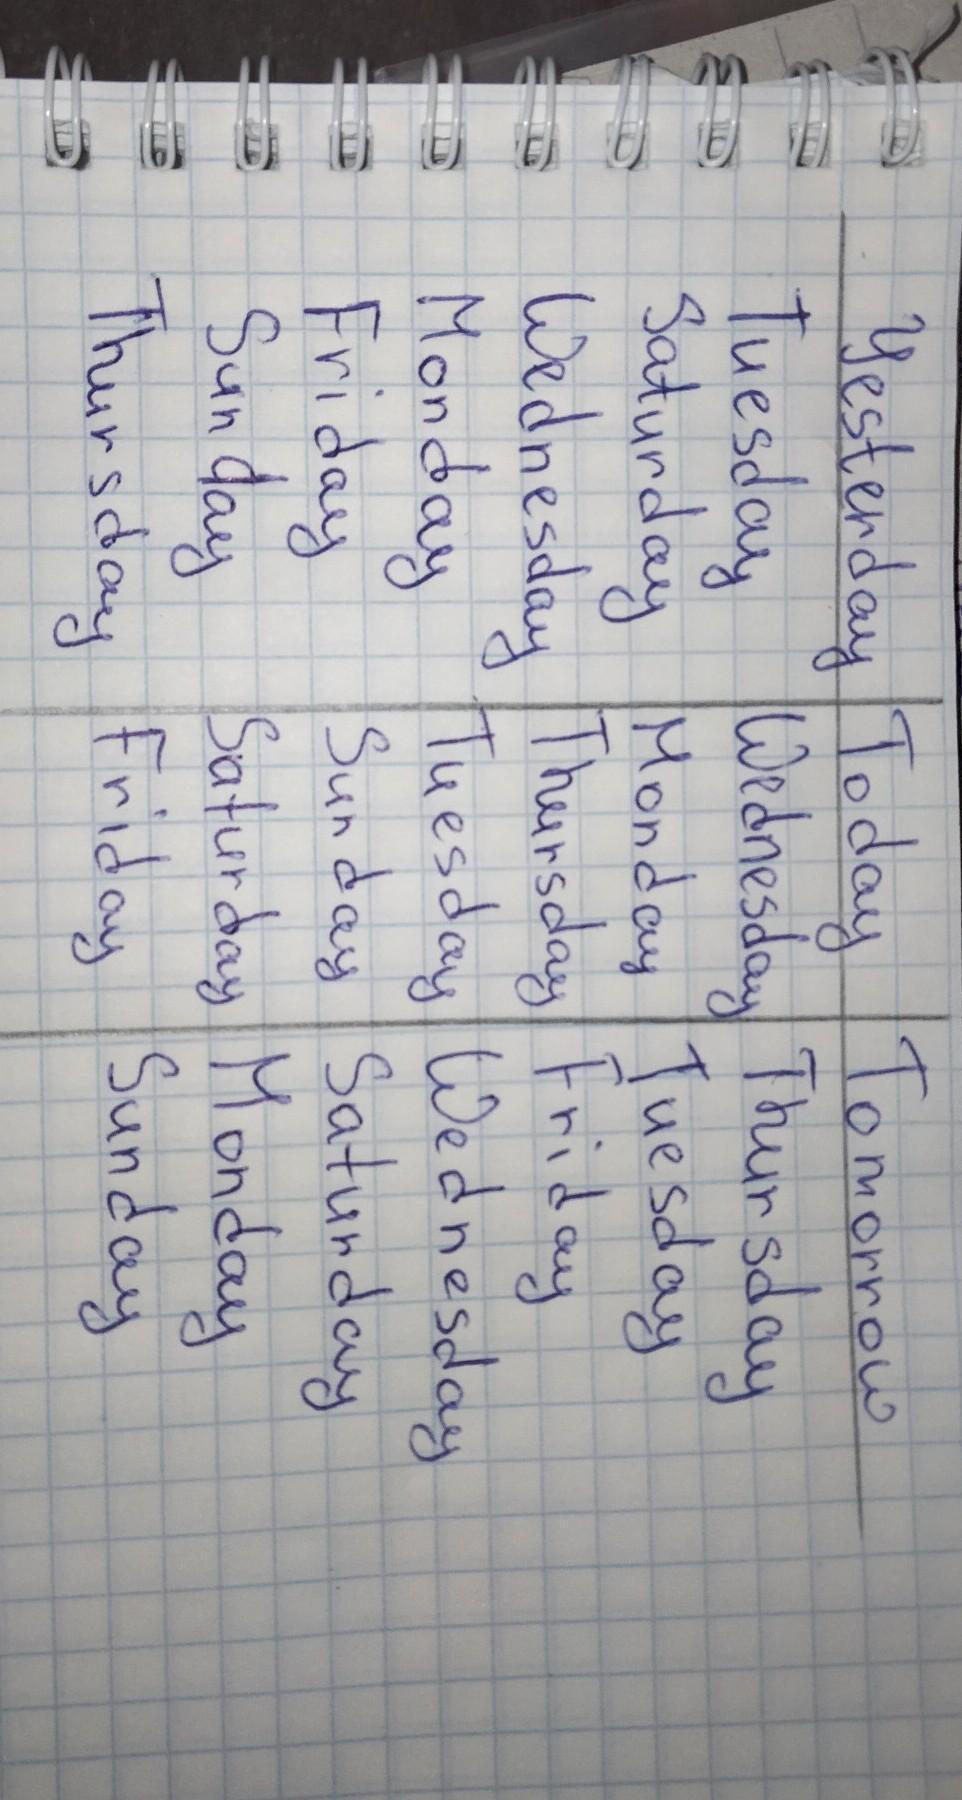 Yesterday Today Tomorrow
Tuesday Wednesday Thursday
Saturday Monday Tuesday
Wednesday Thursday Friday
Monday Tuesday Wednesday
Friday Sunday Saturday
Sunday Saturday Monday
Thursday Friday Sunday